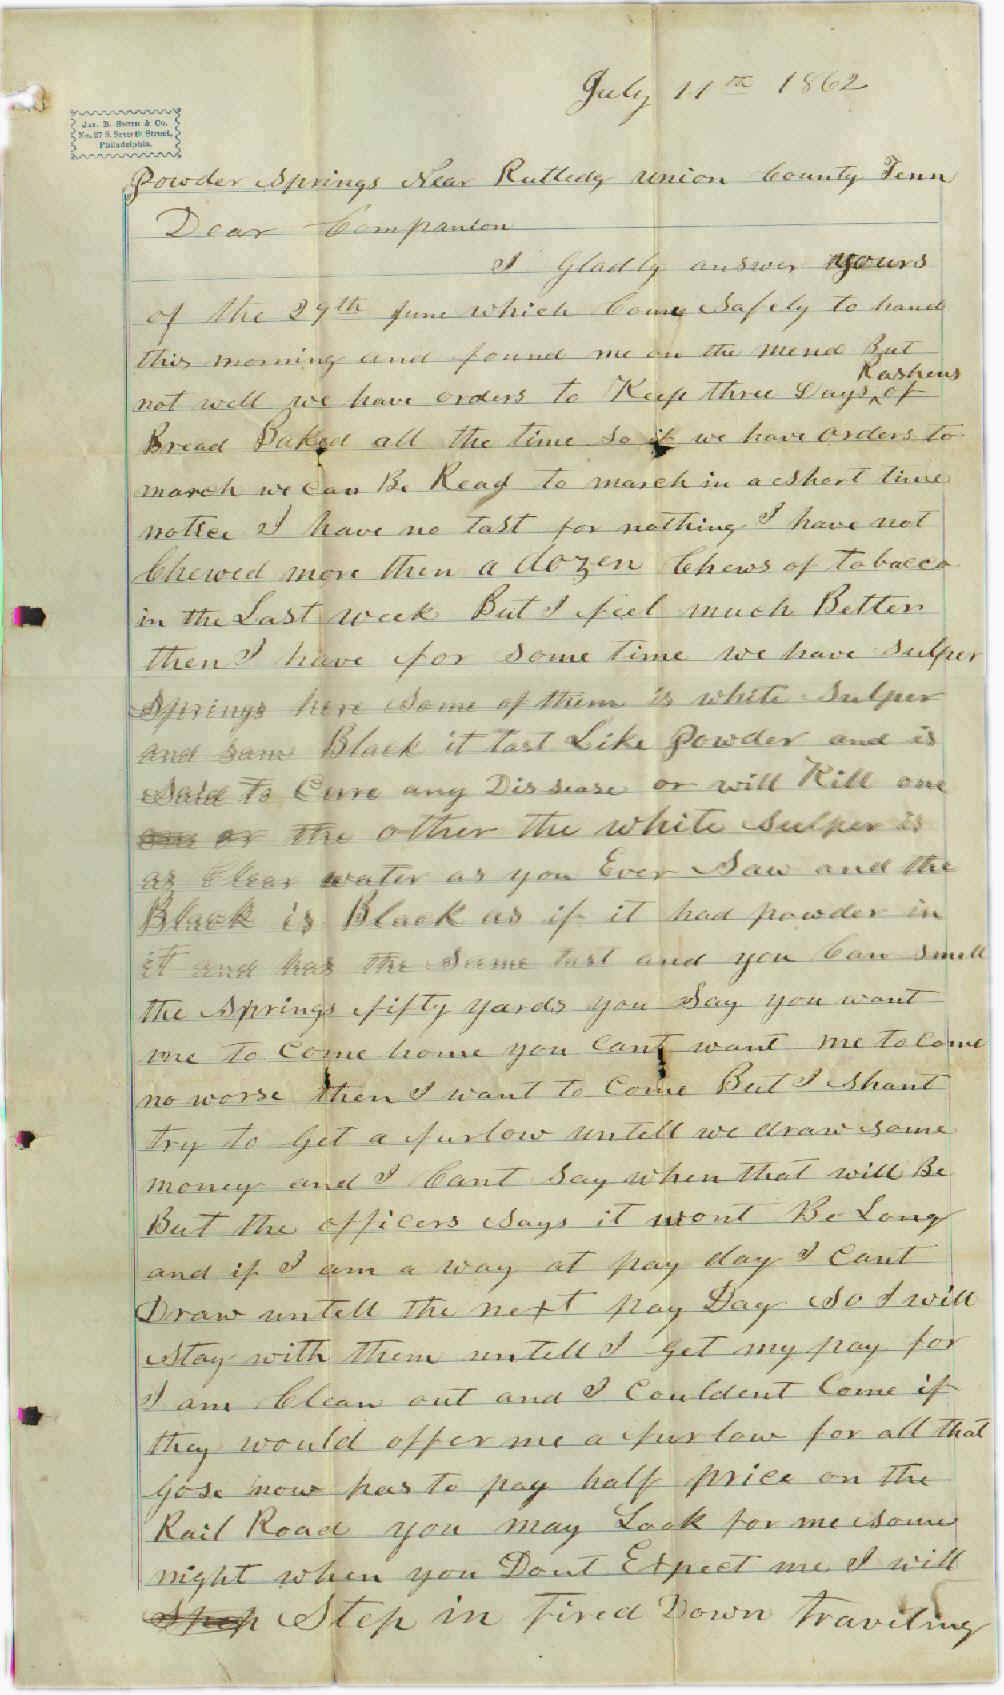 July 11th 1862
Jas. B. Smith & Co.
No. 27 S. Seventh Street,
Philadelphia.
Powder Springs Near Rutledg Union County Tenn
Dear Companion
I Gladly answer yours
of the 29th June which Come Safely to hand
this morning and found me on the mend But
Rashens
not well we have orders to Keep three Days of
Bread Baked all the time So if we have orders to
march we can Be Ready to march in a Short time
notice I have no tast for nothing I have not
Chewed more then a dozen Chews of tobacco
in the Last week But I feel much Better
then I have for Some time we have Sulper
Springs here Some of them is white Sulper
and Some Black it tast Like Powder and is
Said to Cure any Dissease or will Kill one
or the other the white Sulper is
as Clear water as you Ever Saw and the
Black is Black as if it had powder in
it and has the Same tast and you Can Smell
the Springs fifty yards you Say you want
me to Come home you Cant want me to Come
no worse then I want to Come But I Shant
try to Get a furlow untell we draw Some
money and I Cant Say when that will Be
But the officers Says it wont Be Long
and if I am a way at pay day I Cant
Draw untell the next pay Day So I will
Stay with them untell I Get my pay for
I am Clean out and I Couldent Come if
they would offer me a furlow for all that
Gose now has to pay half price on the
Rail Road you may Look for me Some
night when you Dont Expect me I will
Step in Tired Down Traveling